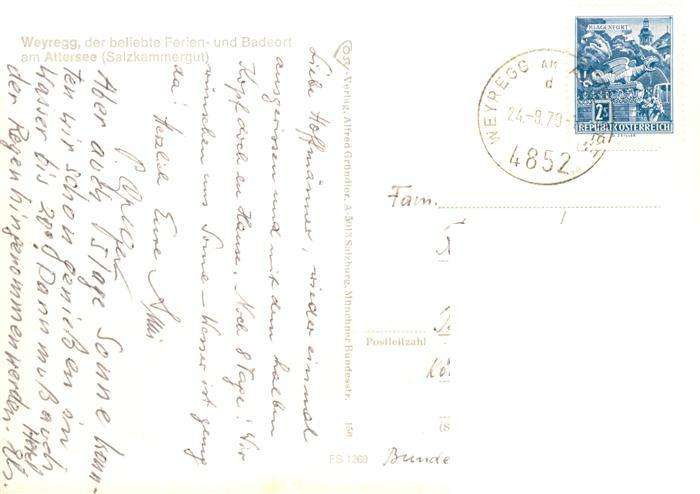 Weyregg, der beliebte Ferien- und Badeort
am Attersee (Salzkammergut)
Liebe Hoffmänner, wieder einmal
ausgerissen und mit dem halben
Kopf doch zu Hause. Noch 8 Tage! Wir
wünschen uns Sonne - Wasser ist genug
da! Herzlich Eure
Aber auch 5 Tage Sonne konn-
ten wir schon genießen, in
Wasser bis 20° g. Dann muß auch
der Regen hingenommen werden.
Cosy-Verlag, Alfred Gründler, A 5013 Salzburg, Münchner Bundesstr.
156
FS 1260
WEYREGG AM
d
24.-9.79-
4852
KLAGENFURT
2S
REPUBLIK ÖSTERREICH
Fam.
Postleitzahl
Bunde